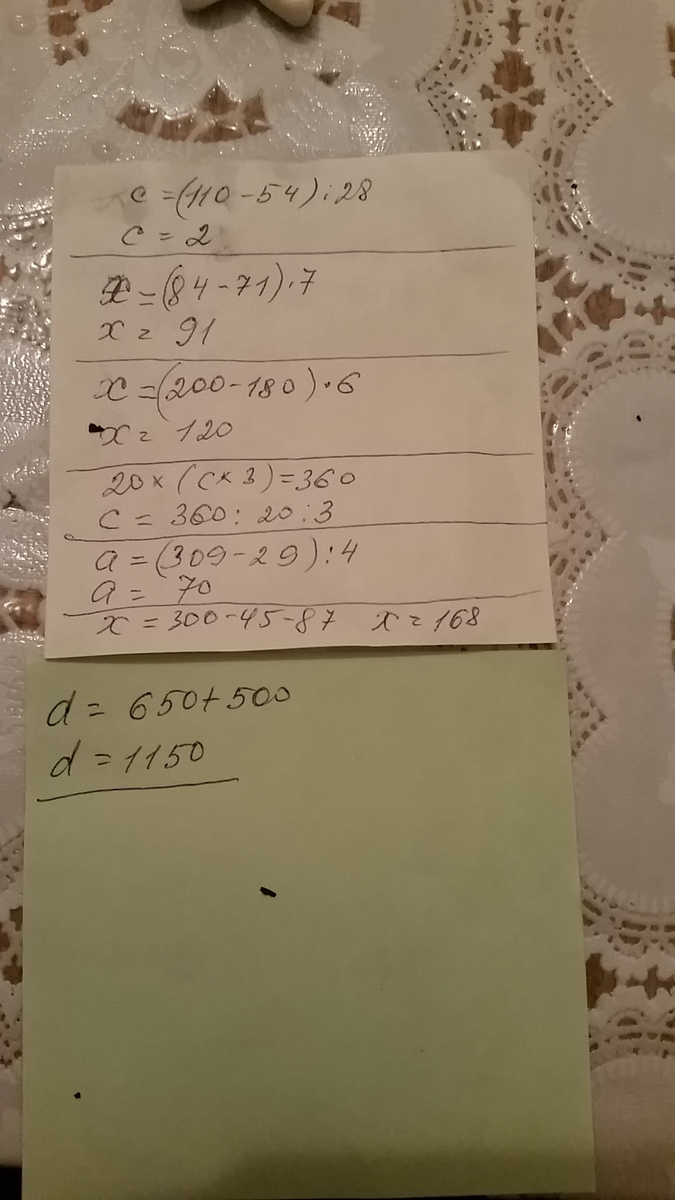 c = (110 - 54) : 28
c = 2
x = (84 - 71) · 7
x = 91
x = (200 - 180) · 6
x = 120
20 × (c × 3) = 360
c = 360 : 20 : 3
a = (309 - 29) : 4
a = 70
x = 300 - 45 - 87 x = 168
d = 650 + 500
d = 1150